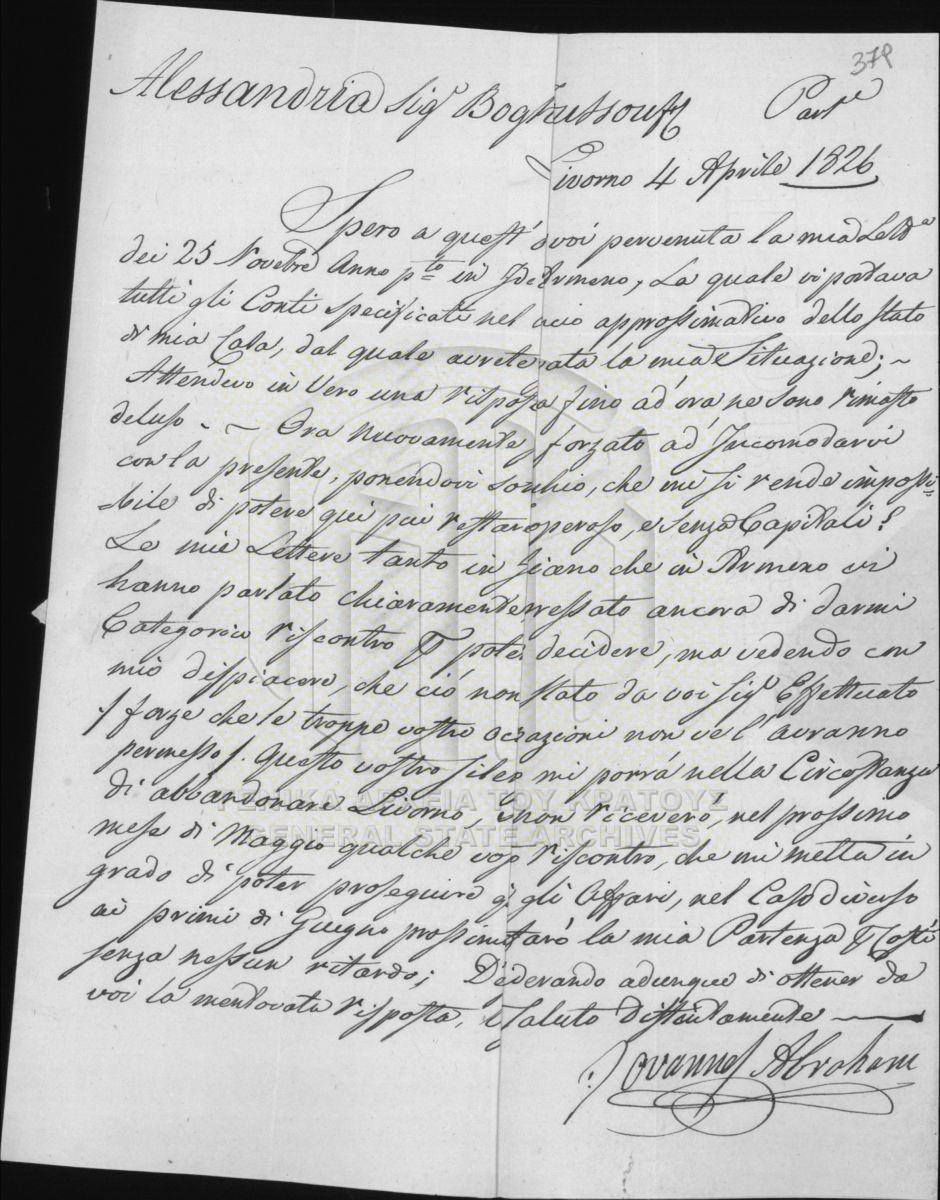 379
Alessandria Sigr Boghussouff Parte
Livorno 4 Aprile 1826
Spero a quest' ovoi pervenuta la mia Letta
dei 25 Novebre Anno pto in Armeno, La quale vi portava
tutti gli Conti specificati nel approssimativo dello stato
di mia Casa, dal quale avrete la mia Situazione; ~
Attendevo in Vero una risposta fino ad' ora ne sono rimasto
deluso. ~ Ora nuovamente forzato ad' Incomodarvi
con la presente, ponendovi che mi si rende impossi=
bile di potere qui più restare operoso, e senza Capitali!
Le mie Lettere tanto in che in Armeno vi
hanno parlato chiaramente ancora di darmi
Categorico riscontro poter decidere, ma vedendo con
mio dispiacere, che ciò non stato da voi Sigr Effettuato
/ forze che le troppe vostre non ve l' avranno
permesso /. Questo vostro mi porrà nella Circostanza
di abbandonare Livorno, non riceverò, nel prossimo
mese di Maggio qualche riscontro, che mi metta in
grado di poter proseguire gli Affari, nel Caso diverso
ai primi di Giugno la mia Partenza Costì
senza nessun ritardo; Desiderando adunque di ottener da
voi la mentovata risposta, Saluto distintamente
Jovannes Abraham
ΓΕΝΙΚΑ ΑΡΧΕΙΑ ΤΟΥ ΚΡΑΤΟΥΣ
GENERAL STATE ARCHIVES